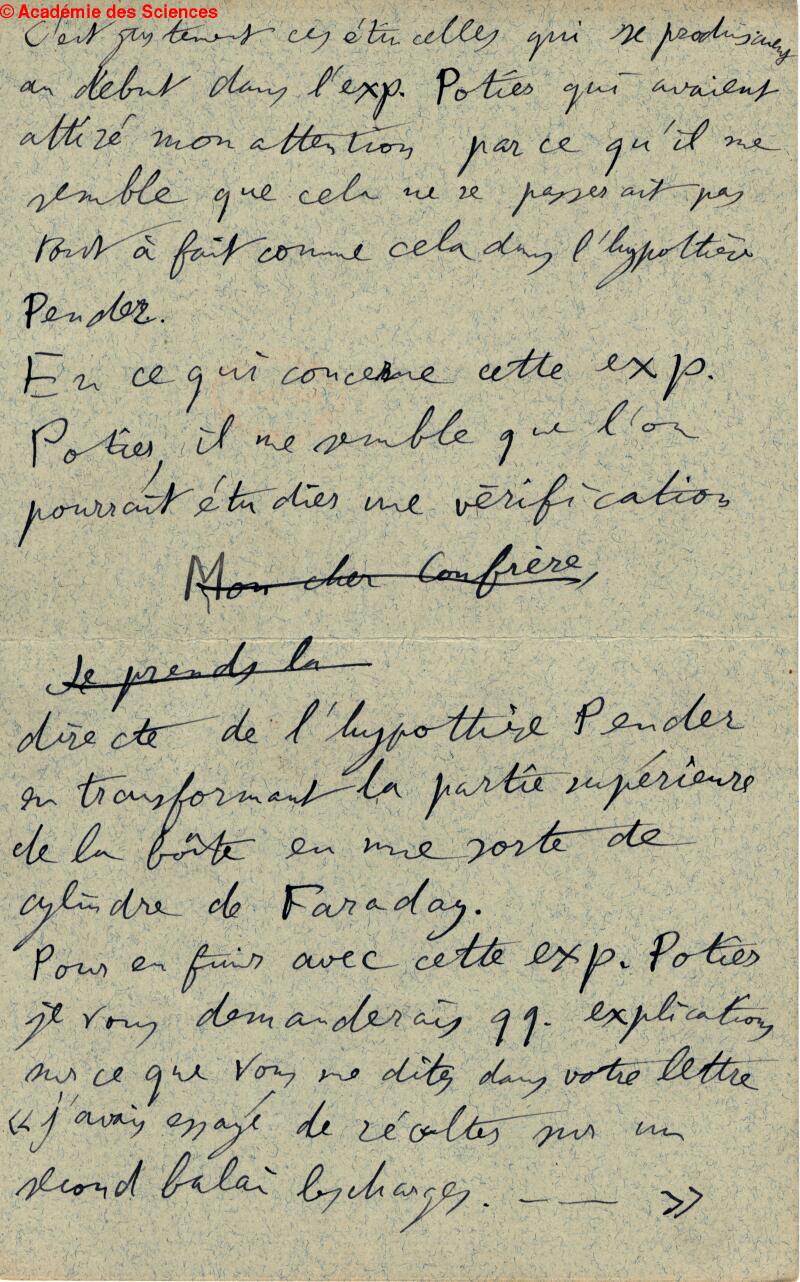 © Académie des Sciences
C'est justement ces étincelles qui se produisaient
au début dans l'exp. Potier qui avaient
attiré mon attention parce qu'il me
semble que cela ne se passerait pas
tout à fait comme cela dans l'hypothèse
Pender.
En ce qui concerne cette exp.
Potier, il me semble que l'on
pourrait étudier une vérification
Mon cher Confrère,
Je prends la
directe de l'hypothèse Pender
en transformant la partie supérieure
de la boîte en une sorte de
cylindre de Faraday.
Pour en finir avec cette exp. Potier
je vous demanderais qq. explications
sur ce que vous me dites dans votre lettre
« j'avais essayé de récolter sur un
second balai les charges. — — »